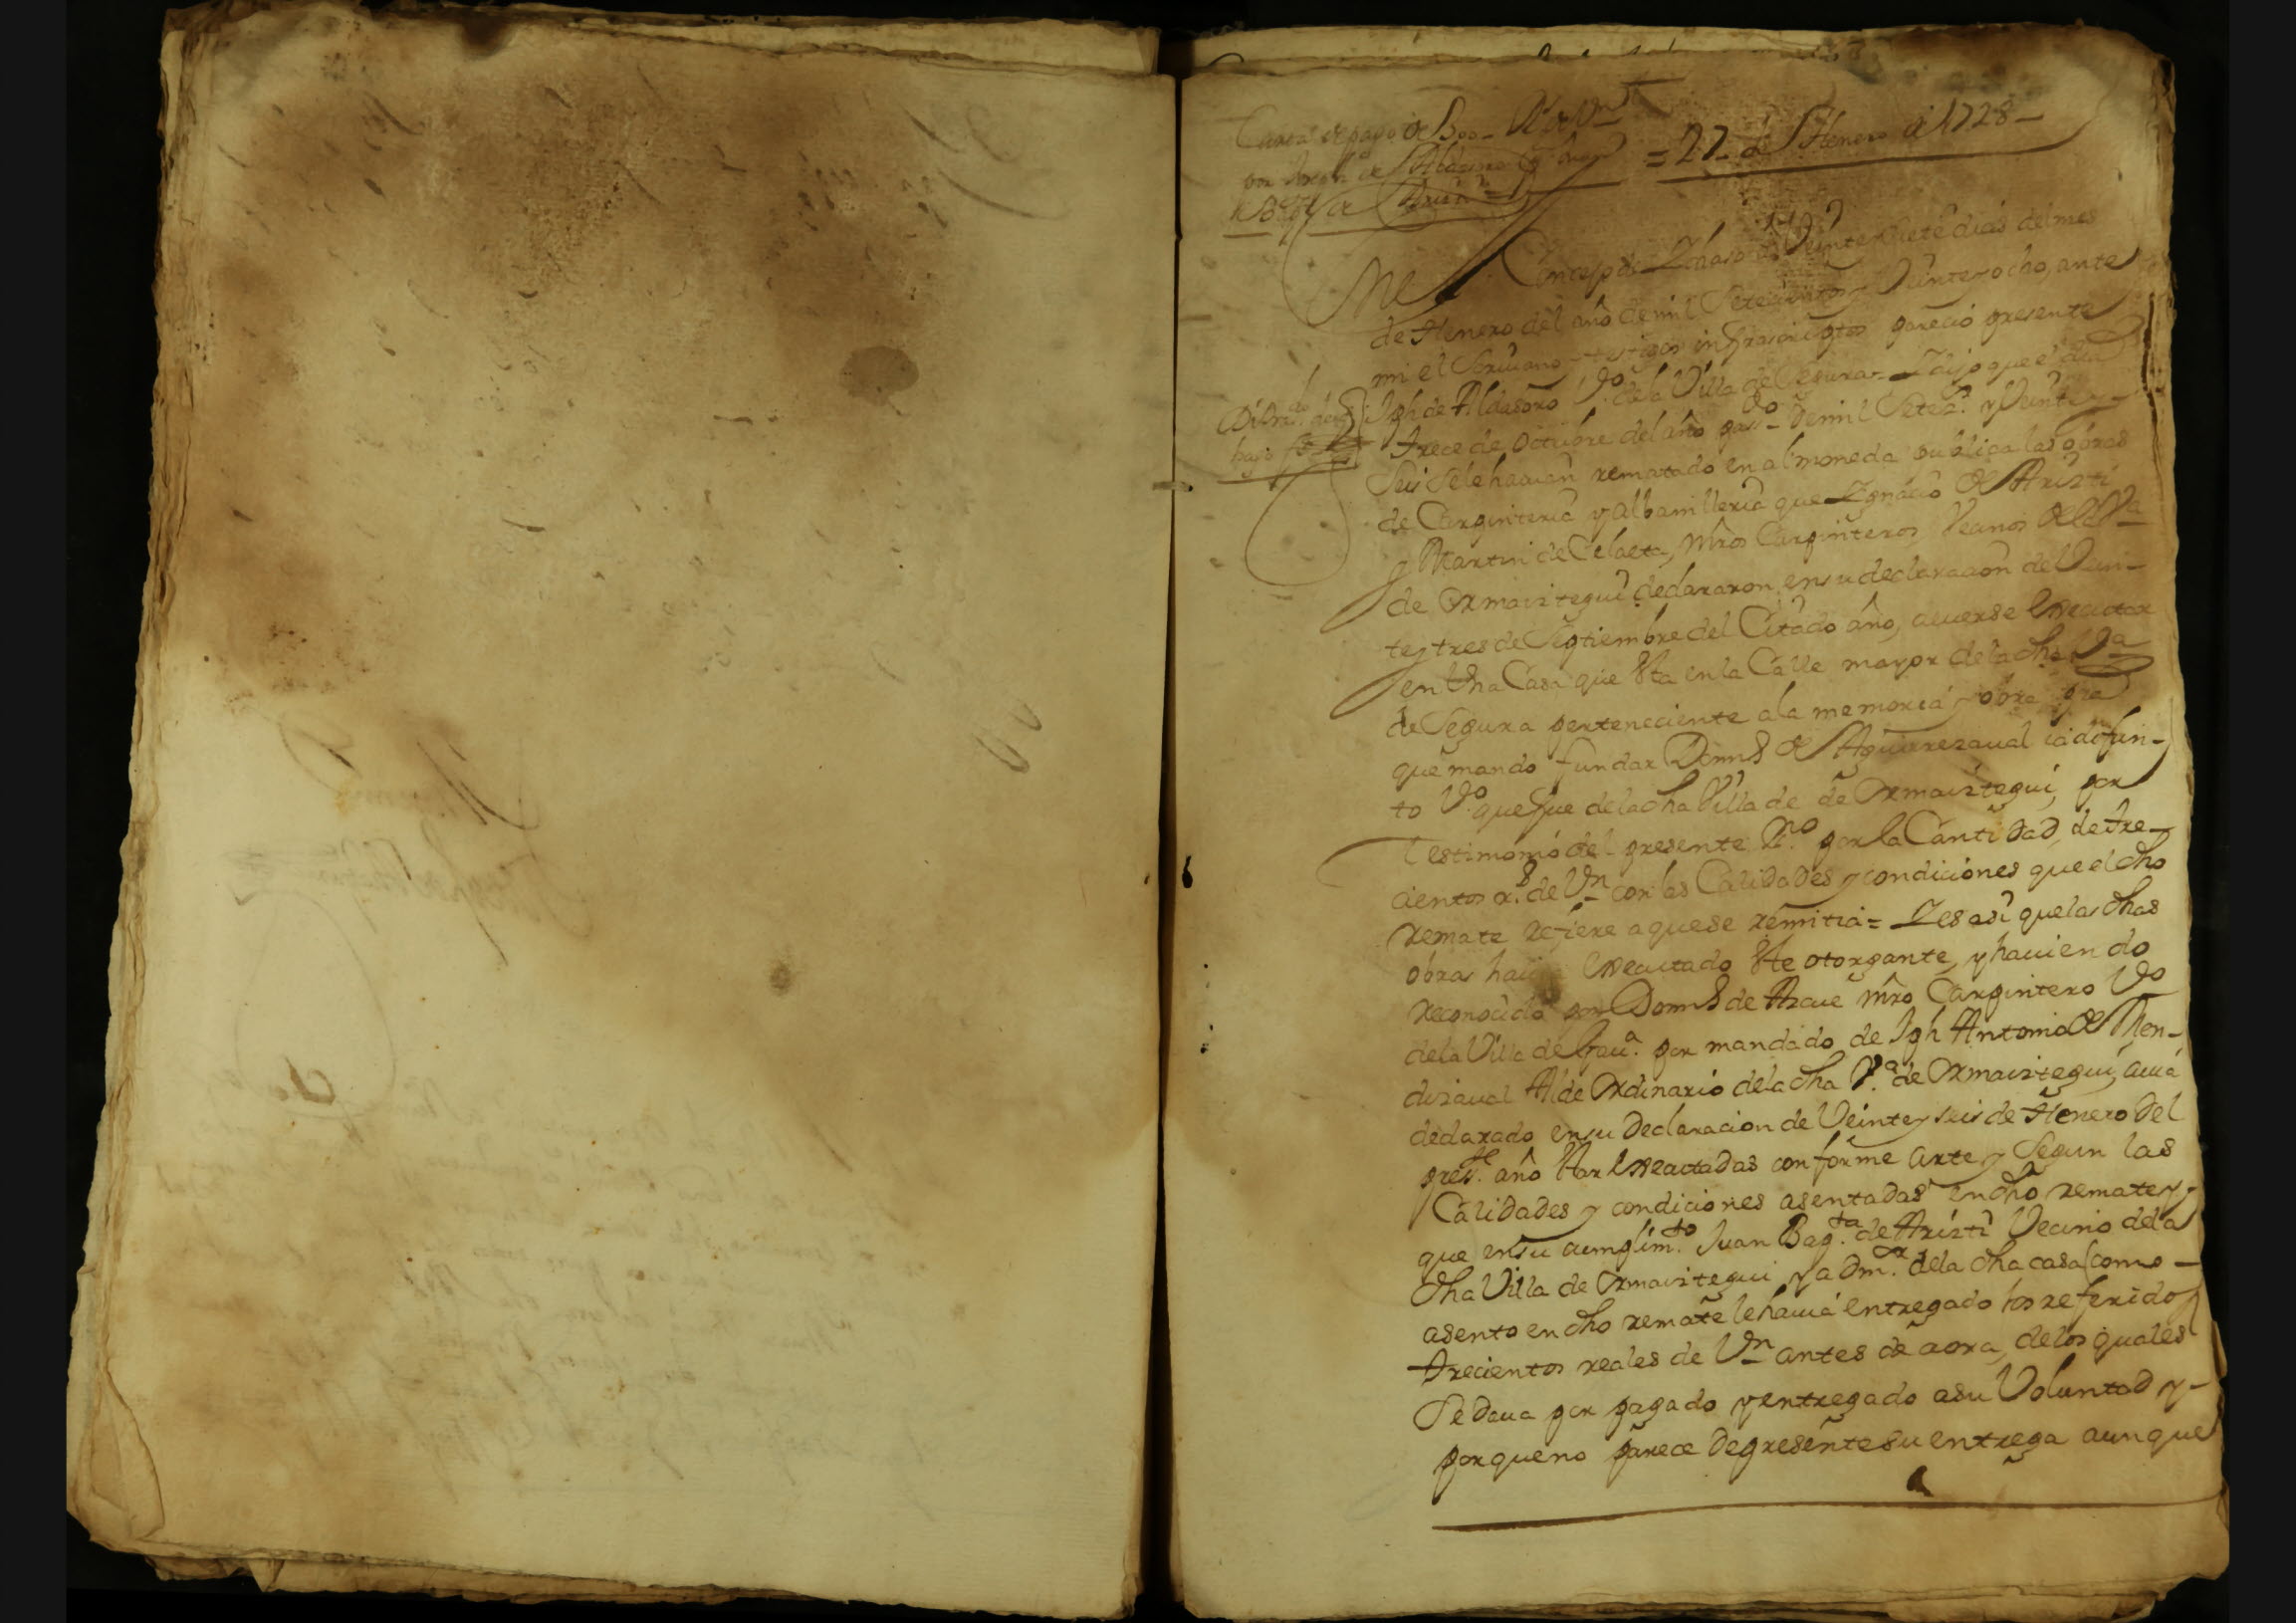 Carta de pago de 300 Rs de Vn
por Joseph de Aldasoro Con Juan
Bapta de Arizti
= 27 de Henero de 1728 —
Concejo de Ydiazabal a Veinte y siete dias del mes
de Henero del año de mil Setecientos y Veinte y ocho, ante
mi el Scriuano y testigos infrascriptos parecio presente
Jph de Aldasoro Vo. de la Villa de Segura = Y dijo que el dia
trece de Octubre del año pasdo de mil Setezs. y Veinte y
Seis Se le hauian rematado en almoneda publica las obras
de Carpinteria y albanilleria que Ygnacio de Arizti
y Martin de Celaeta, Mros Carpinteros Vecinos de la Va
de Ormaiztegui declararon en su declaracion de Vein-
te y tres de Septiembre del Citado año, deuerse Executar
en Una Casa que Sta en la Calle mayor de la dha Va
de Segura perteneciente a la memoria y obra pia
que mando fundar Domns de Aguirrezaual ia difun-
to Vo. que fue de la dha Villa de de Ormaiztegui, por
testimonio del presente Sno por la Cantidad, de tre-
cientos rs. de Vn con las Calidades y condiciones que el dho
remate refiere a que se remitia = Y es asi que las dhas
obras hauia Executado Ste otorgante, y hauiendo
reconocido por Domns de Azcue Mro Carpintero Vo
de la Villa de por mandado de Jph Antonio de Men-
dizaual Alde Ordinario de la dha Va. de Ormaiztegui, auia
declarado en su Declaracion de Veinte y seis de Henero del
preste. año Star Executadas conforme arte y Segun las
Calidades y condiciones asentadas en dho remate y
que en su cumplimto. Juan Bapta. de Arizti Vecino de la
dha Villa de Ormaiztegui y admor. de la dha casa (como
asento en dho remate le hauia entregado los referidos
trecientos reales de Vn antes de aora, de los quales
Se daua por pagado y entregado a su Voluntad y
porque no parece de presente su entrega aunque